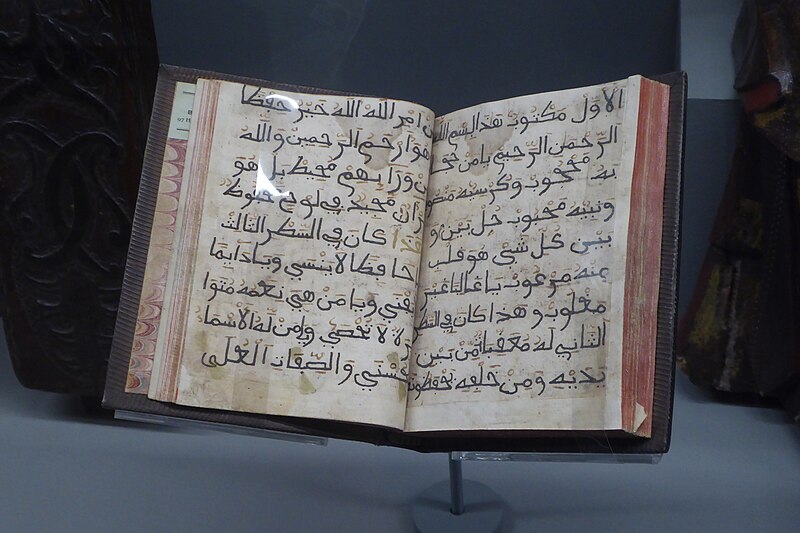 الاول مكتوب
الرحمن الرحيم يا من
به محجوب وكرسيه منصو
ونبيه محبوب حل بيني و
بين كل شي هو قلب
منه مرعوب يا غالبا غير
مغلوب وهذا كان في
الثاني له معقبات من بين
يديه ومن خلفه يحفظونه
من امر الله الله خير حفظا
وهو ارحم الرحمين والله
من ورايهم محيط بل هو
قران مجيد في لوح محفوظ
هذا كان في السطر الثالث
يا حافظا لا ينسي ويا دايما
يفني ويا من هي نعمه متوا
ترة لا تحصي ويا من له الاسما
الحسني والصفات العلي